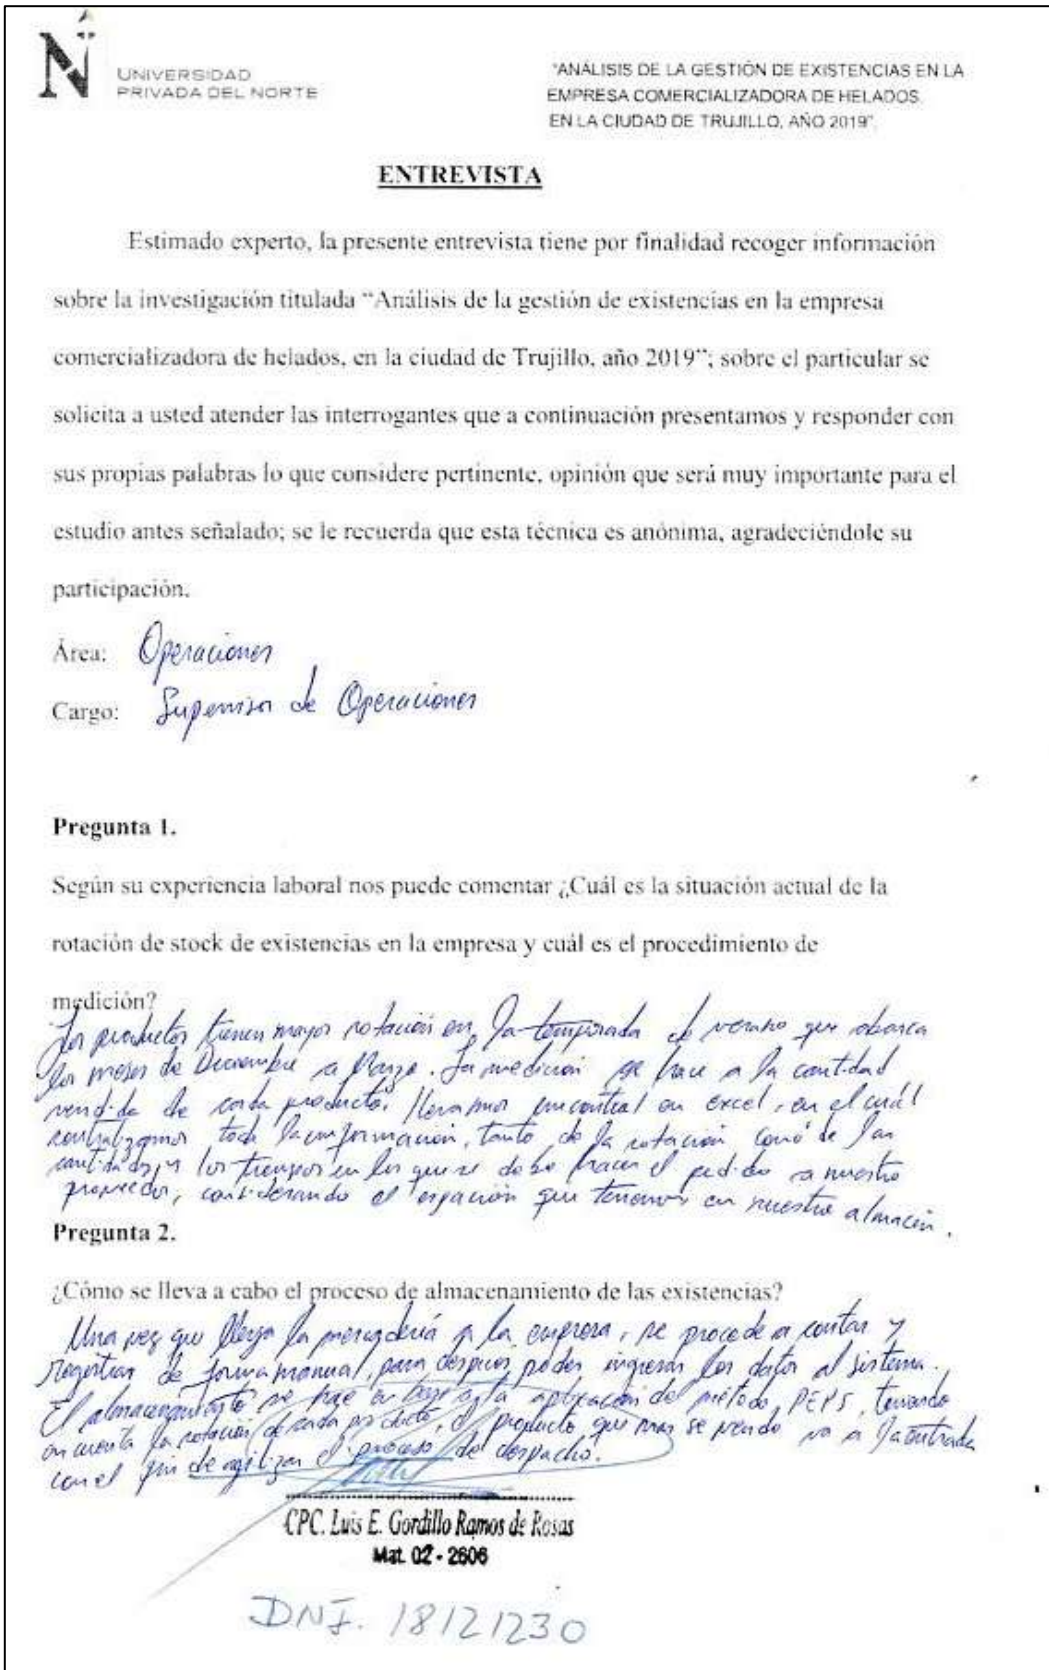 UNIVERSIDAD
PRIVADA DEL NORTE
"ANÁLISIS DE LA GESTIÓN DE EXISTENCIAS EN LA
EMPRESA COMERCIALIZADORA DE HELADOS,
EN LA CIUDAD DE TRUJILLO, AÑO 2019".
ENTREVISTA
Estimado experto, la presente entrevista tiene por finalidad recoger información
sobre la investigación titulada "Análisis de la gestión de existencias en la empresa
comercializadora de helados, en la ciudad de Trujillo, año 2019"; sobre el particular se
solicita a usted atender las interrogantes que a continuación presentamos y responder con
sus propias palabras lo que considere pertinente, opinión que será muy importante para el
estudio antes señalado; se le recuerda que esta técnica es anónima, agradeciéndole su
participación.
Área: Operaciones
Cargo: Supervisor de Operaciones
Pregunta 1.
Según su experiencia laboral nos puede comentar ¿Cuál es la situación actual de la
rotación de stock de existencias en la empresa y cuál es el procedimiento de
medición?
Los productos tienen mayor rotación en la temporada de verano que abarca
los meses de Diciembre a Marzo. La medición se hace a la cantidad
vendida de cada producto, llevamos un control en excel, en el cuál
toda la información, tanto de la rotación como de las
cantidades y los tiempos en los que se debe hacer el pedido a nuestro
proveedor, considerando el espación que tenemos en nuestro almacén.
Pregunta 2.
¿Cómo se lleva a cabo el proceso de almacenamiento de las existencias?
Una vez que llega la mercadería a la empresa, se procede a contar y
registrar de forma manual, para después poder ingresar los datos al sistema.
El almacenamiento se hace en base a la aplicación del método PEPS, tomando
en cuenta la rotación de cada producto, el producto que mas se vende va a la entrada
con el fin de agilizar el proceso de despacho.
CPC. Luis E. Gordillo Ramos de Rosas
Mat. 02 - 2606
DNI. 18121230